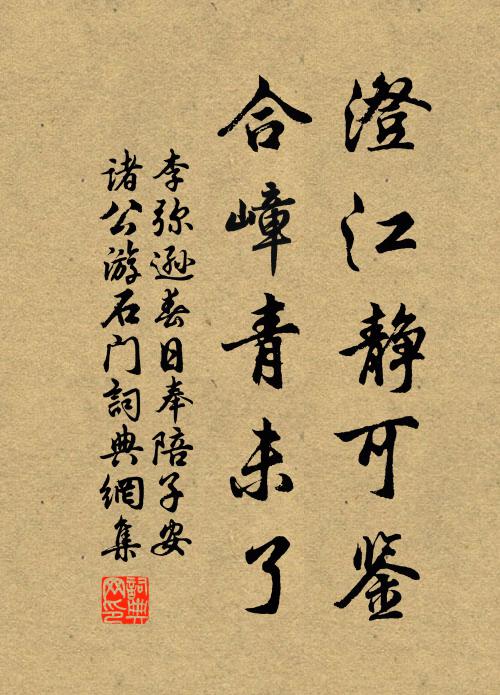 澄江静可鉴
合嶂青未了
李弥逊春日奉陪子安
诸公游石门词典網集
詞典網印